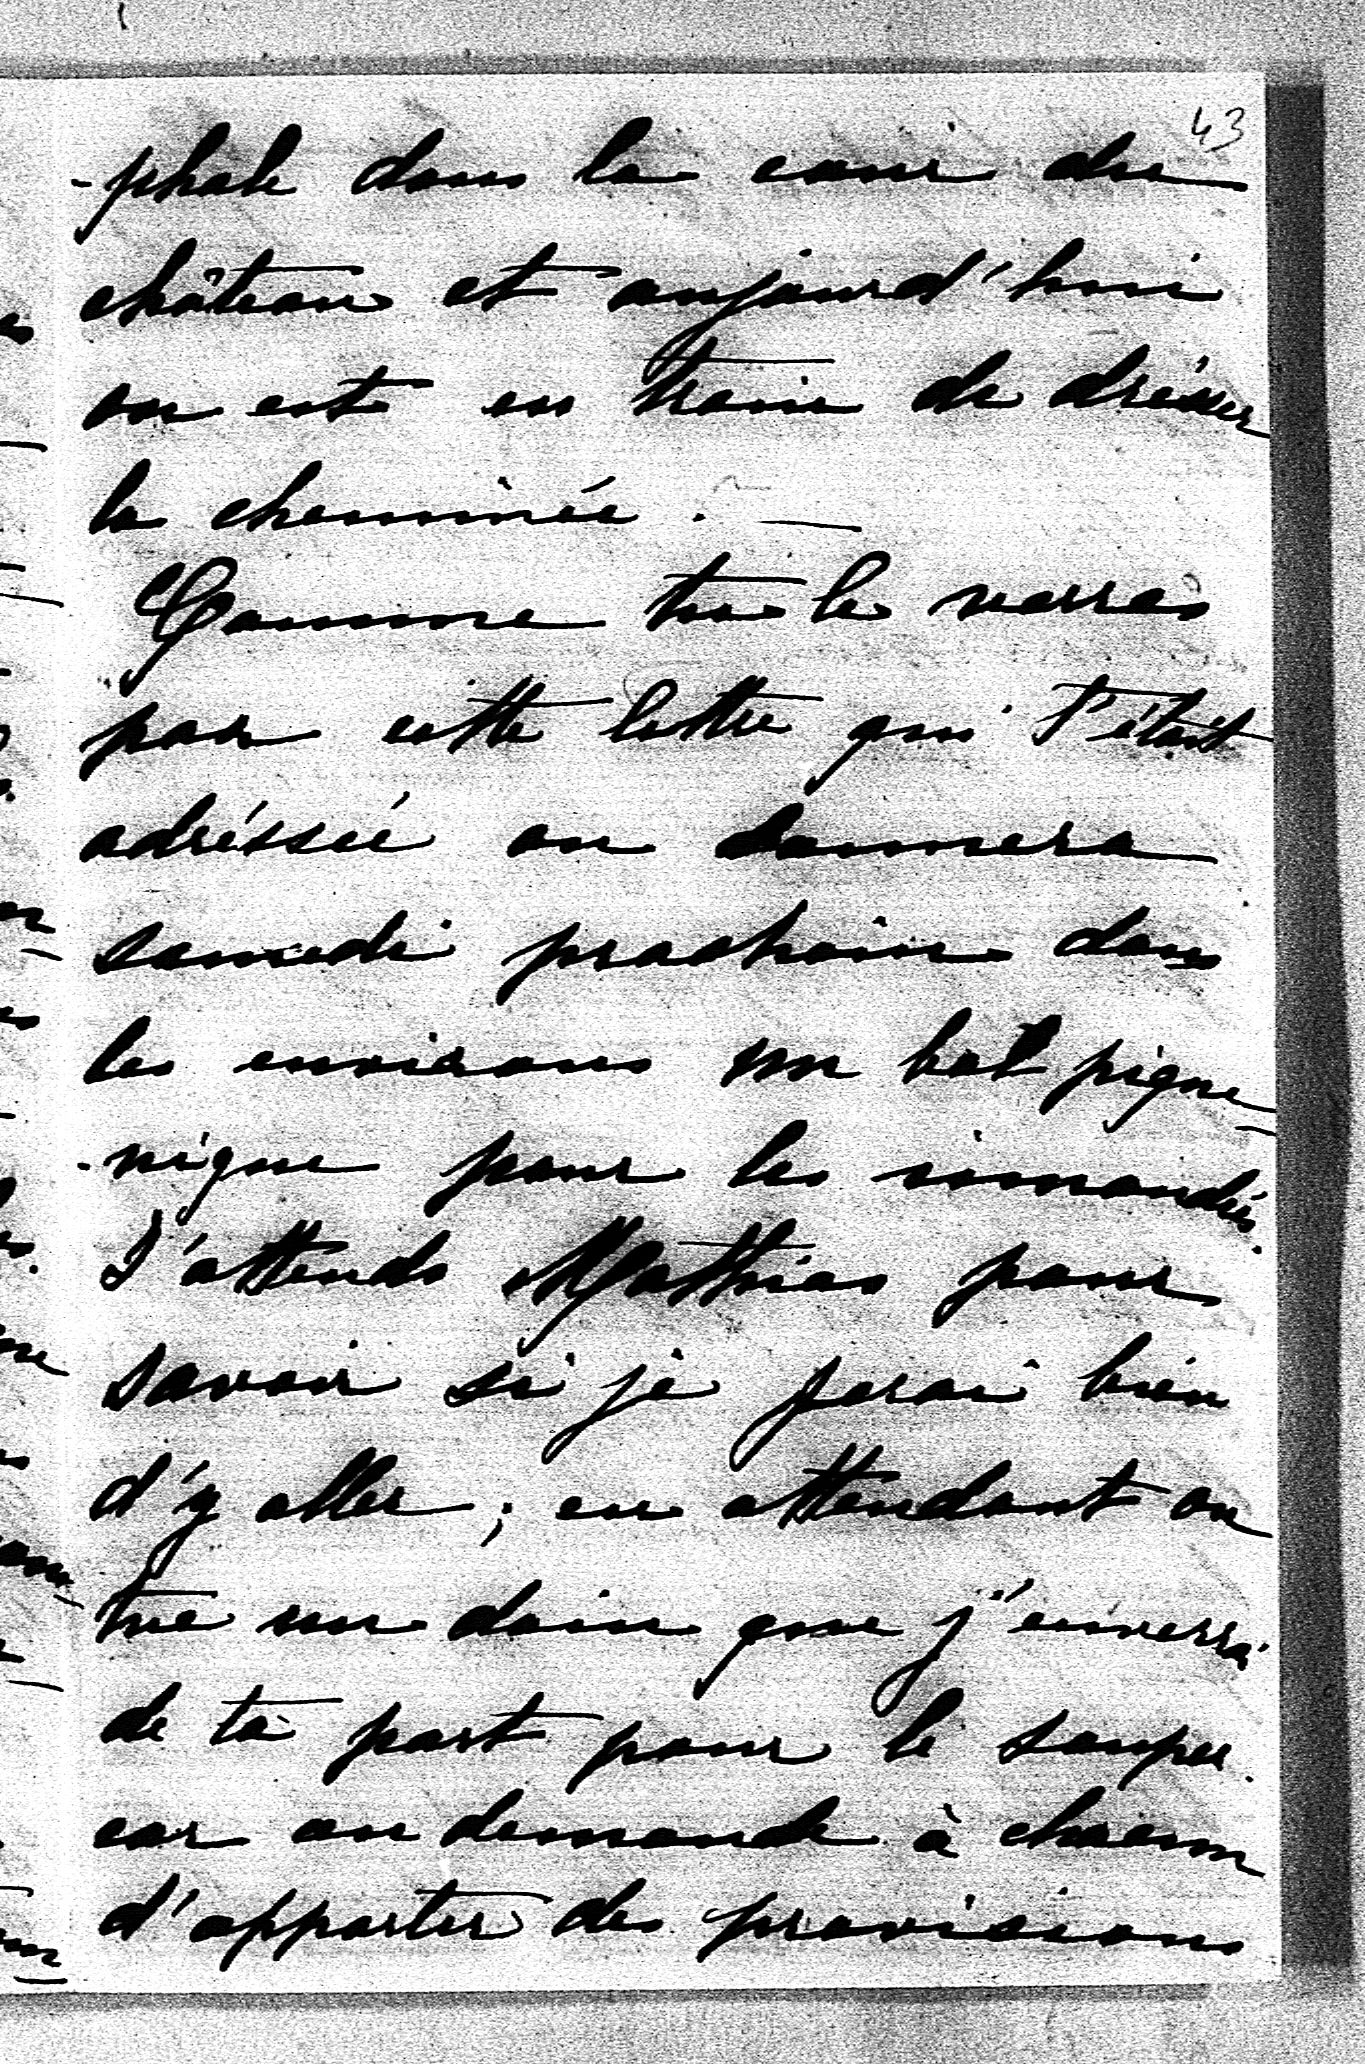 43
-phale dans la cour du
château et aujourd'hui
on est en train de drésser
la cheminée. —
Comme tu le verras
par cette lettre qui t'était
adréssée on donnera
samedi prochain dans
les environs un bal pique
-nique pour les inondés.
J'attends Mathieu pour
savoir si je ferai bien
d'y aller; en attendant on
tue un daim que j'enverrai
de ta part pour le souper.
car on demande à chacun
d'apporter des provisions